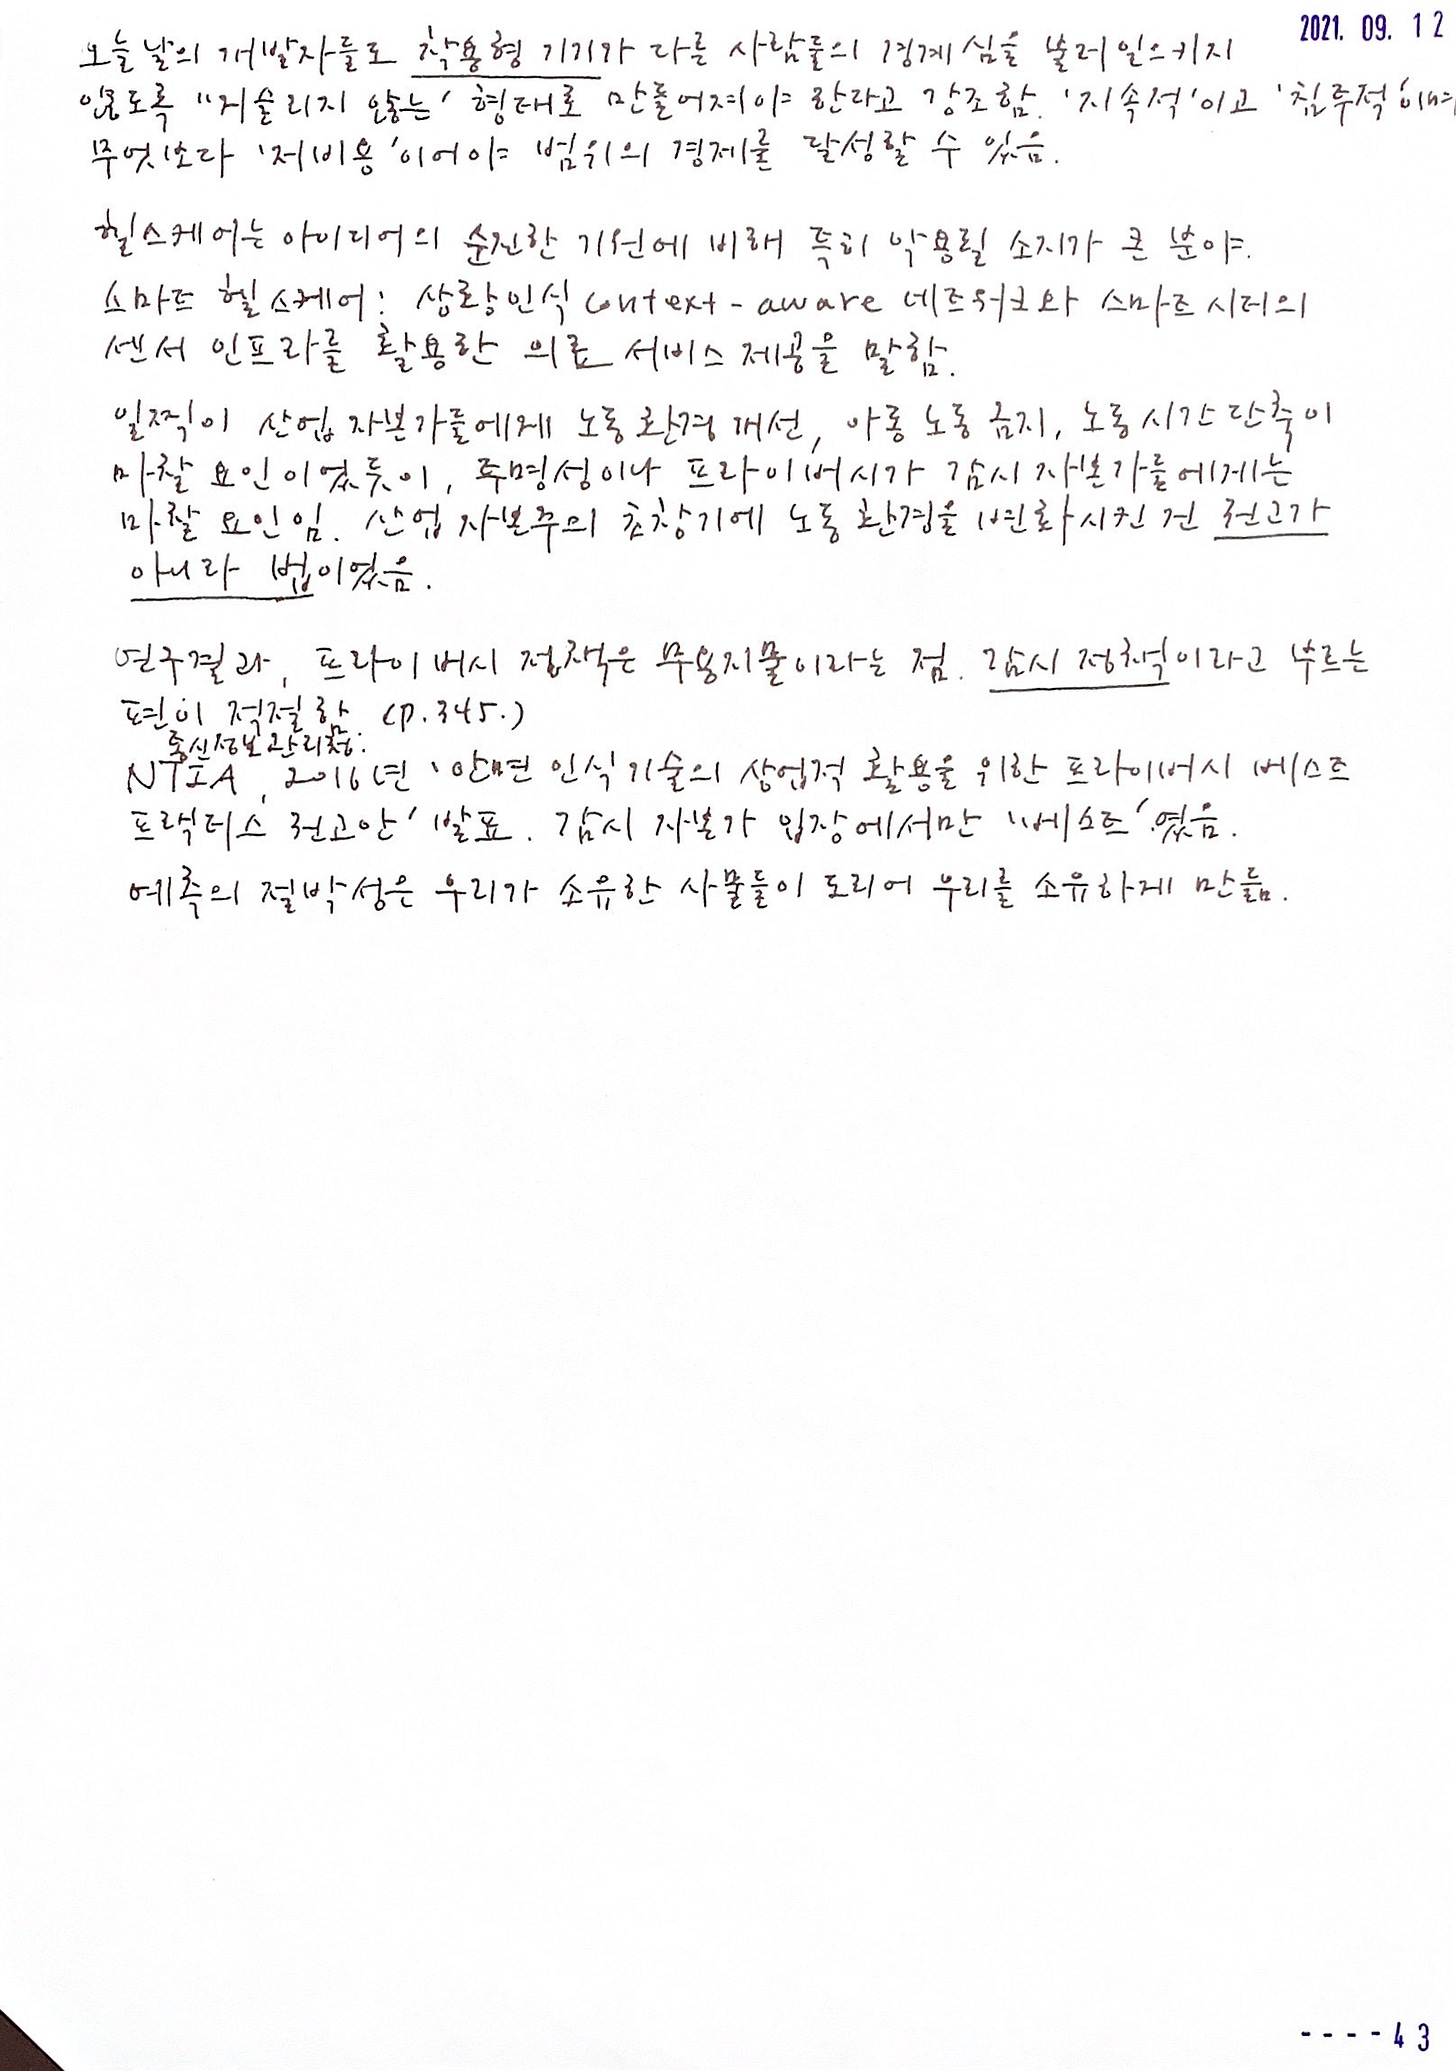 2021. 09. 12
오늘날의 개발자들도 착용형 기기가 다른 사람들의 경계심을 불러일으키지
않도록 "거슬리지 않는' 형태로 만들어져야 한다고 강조함. '지속적'이고 '침투적'이며
무엇보다 '저비용'이어야 범위의 경제를 달성할 수 있음.
헬스케어는 아이디어의 순진한 기원에 비해 특히 악용될 소지가 큰 분야.
스마트 헬스케어: 상황인식 context-aware 네트워크와 스마트 시티의
센서 인프라를 활용한 의료 서비스 제공을 말함.
일찍이 산업 자본가들에게 노동 환경 개선, 아동 노동 금지, 노동시간 단축이
마찰 요인이었듯이, 투명성이나 프라이버시가 감시 자본가들에게는
마찰 요인임. 산업 자본주의 초창기에 노동 환경을 변화시킨 건 권고가
아니라 법이었음.
연구결과, 프라이버시 정책은 무용지물이라는 점. 감시 정책이라고 부르는
편이 적절함 (p.345.)
통신정보관리청:
NTIA, 2016년 '안면 인식 기술의 상업적 활용을 위한 프라이버시 베스트
프랙티스 권고안' 발표. 감시 자본가 입장에서만 "베스트'였음.
예측의 절박성은 우리가 소유한 사물들이 도리어 우리를 소유하게 만듦.
----43